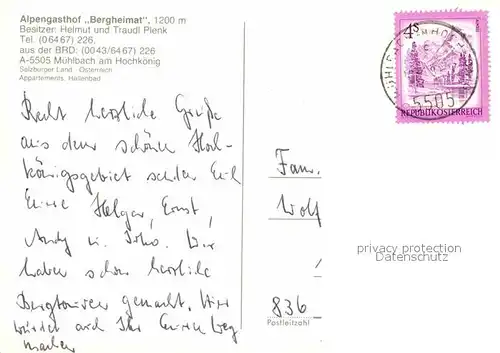 Alpengasthof „Bergheimat", 1200 m
Besitzer: Helmut und Traudl Pienk
Tel. (06467) 226,
aus der BRD: (0043/6467) 226
A-5505 Mühlbach am Hochkönig
Salzburger Land · Österreich
Appartements, Hallenbad
4S
REPUBLIK ÖSTERREICH
5505
Recht herzliche Grüße
aus dem schönen Hoch-
königsgebiet senden Euch
Eure Helga, Ernst,
Andy u. Wir
haben schon herrliche
Bergtouren gemacht. Hier
würdet auch Ihr Euren Weg
machen
Fam.
Wolf
836
Postleitzahl
privacy protection
Datenschutz